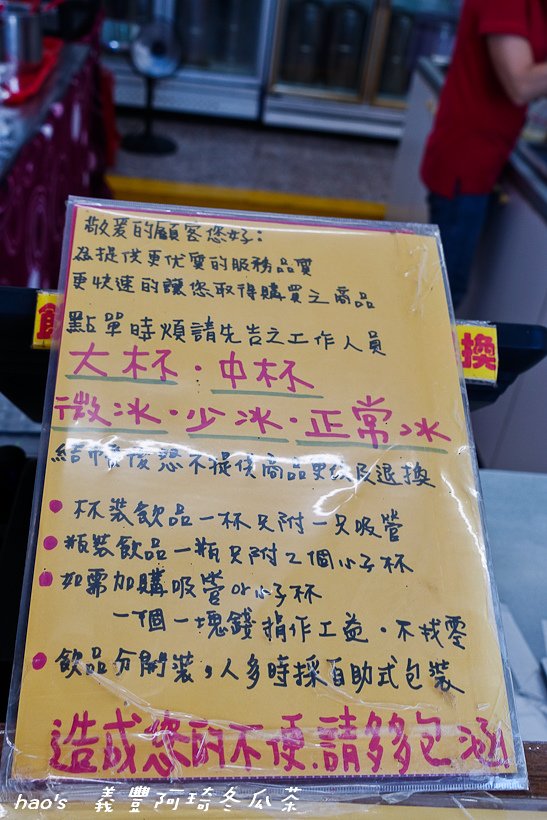 敬愛的顧客您好：
為提供更优質的服務品質
更快速的讓您取得購買之商品
點單時煩請先告之工作人員
大杯．中杯
微冰．少冰．正常冰
結帳後恕不提供商品更改及退換
換
杯裝飲品一杯只附一只吸管
瓶裝飲品一瓶只附2個小子杯
如需加購吸管or小子杯
一個一塊錢捐作工益．不找零
飲品分開裝，人多時採自助式包裝
造成您的不便.請多多包涵!
hao's 義豐阿琦冬瓜茶